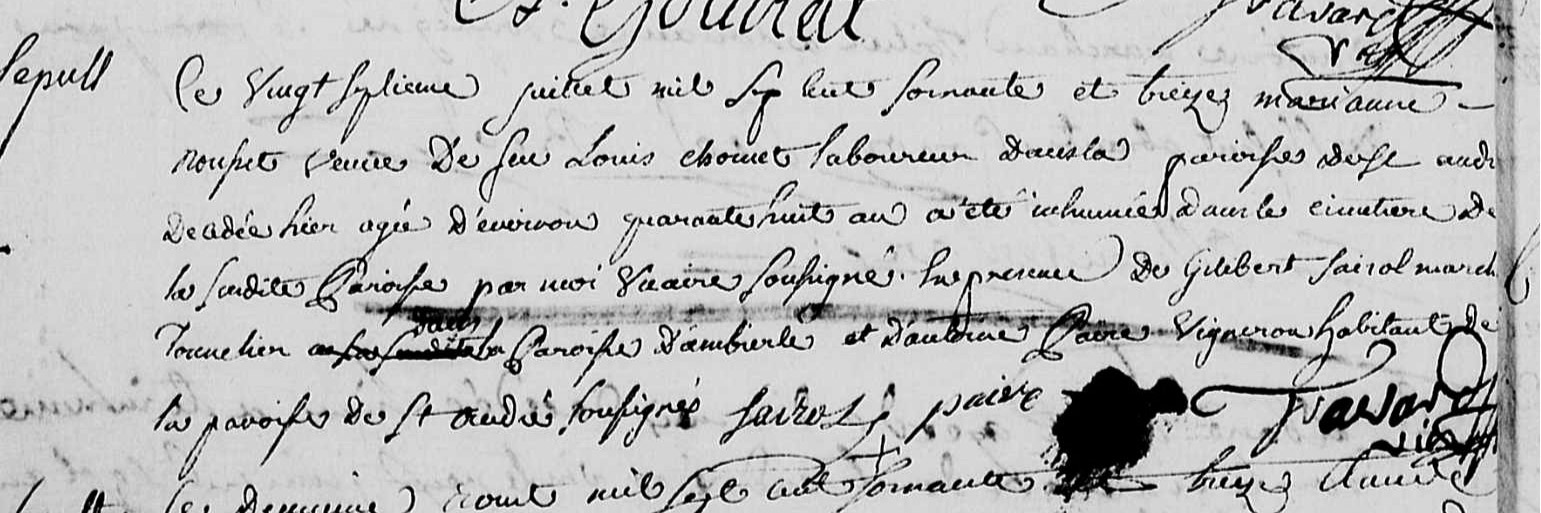 St. Goutral
Travard
Vic
Sepult Ce Vingt septieme juillet mil sept cent soixante et treize marianne
roufset veuve De feu Louis choinet laboureur dansla paroisse de st andr
Decedée hier agée D'environ quarante huit an a été inhumée dansle cimetiere De
la susdite Paroisse par moi Vicaire soussigné. En presence De Gilbert sairol march
Tonnelier dans la Paroisse D'ambierle et D'antoine Paire Vigneron habitant De
la paroisse De St andré soussignés sairol paire Travard
vic
Ce Deuxieme aout mil sept cent soixante treize Claude